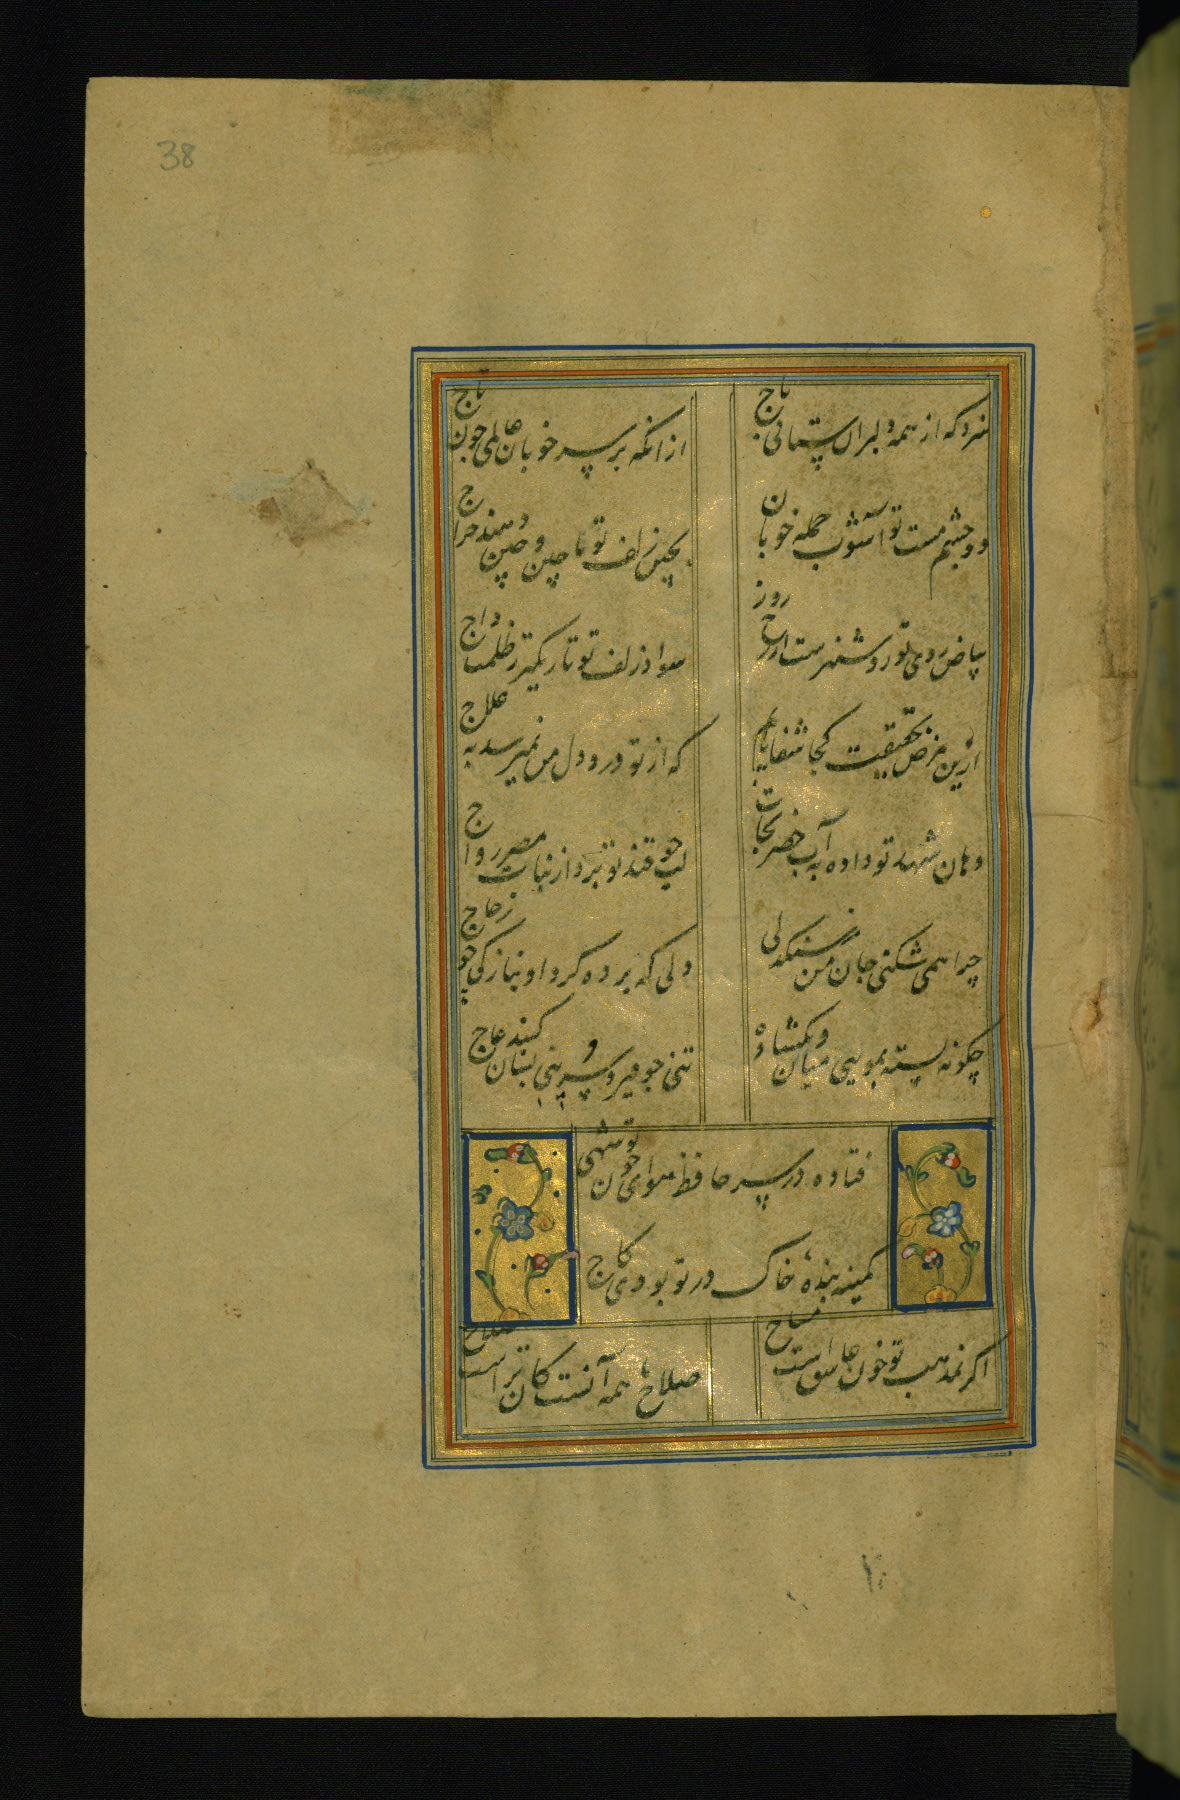 38
سزد که از همه دلبران ستانی باج
از انکه بر سر خوبان عالمی چون تاج
دو چشم مست تو آشوب جمله خوبان
بچین زلف تو تا چین و چین و هند خراج
بیاض روی تو روشنترست از رخ روز
سواد زلف تو تاریکتر ز ظلمت داج
ازین مرض بحقیقت کجا شفا یابم
که از تو درد دل من نمیرسد به علاج
دهان شهد تو داده به آب خضر نجات
لب چو قند تو برد از نبات مصر رواج
چرا همی شکنی جان من ز سنکدلی
دلی که پرده کرد او بنازکی چو زجاج
چکونه بسته بمویی میان و بکشاده
تنی چو میر و سرینی بسان کنبد عاج
فتاده در سر حافظ هوای چون تو شهی
کمینه بندهٔ خاک در تو بودی کاج
اکر بمذهب تو خون عاشق است مباح
صلاح ما همه آنست کان تراست صلاح